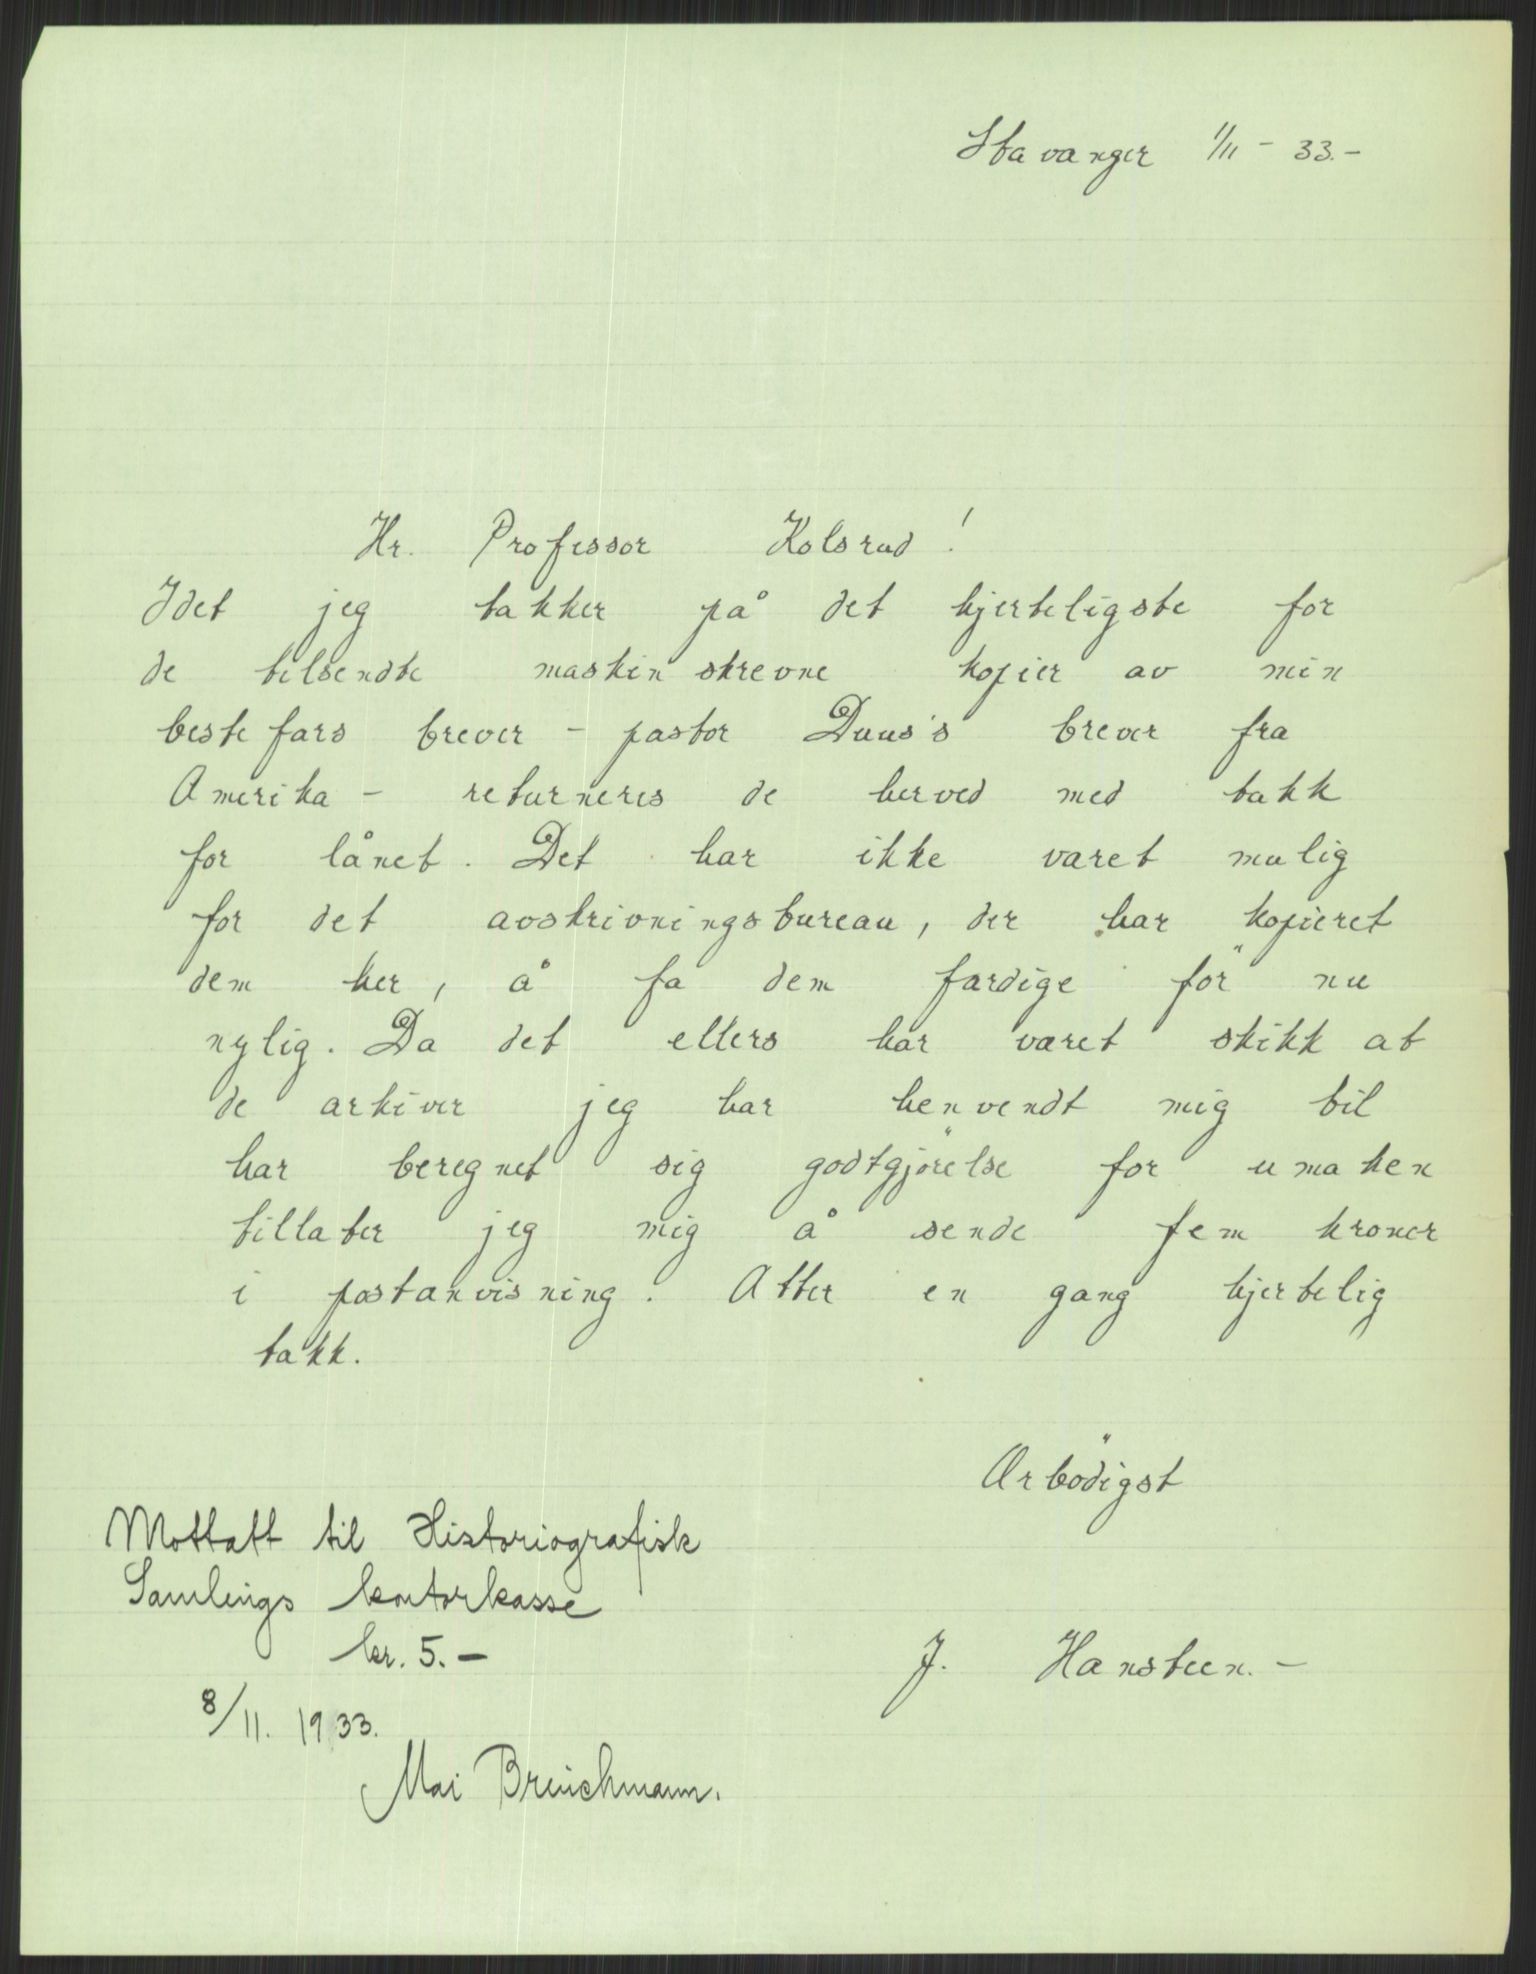 Stavanger 1/11 - 33.-
Hr. Professor Kolsrud!
Idet jeg takker på det hjerteligste for
de tilsendte maskinskrevne kopier av min
bestefars brever - pastor Duus's brever fra
Amerika - returneres de herved med takk
for lånet. Det har ikke været mulig
for det avskrivningsbureau, der har kopieret
dem her, å få dem færdige för nu
nylig. Da det ellers har været skikk at
de arkiver jeg har henvendt mig til
har beregnet sig godtgjörelse for umaken
tillater jeg mig å sende fem kroner
i postanvisning. Atter en gang hjertelig
takk.
Ærbödigst
J. Hansteen.-
Mottatt til Historiografisk
Samlings kontorkasse
kr. 5.-
8/11. 1933.
Mai